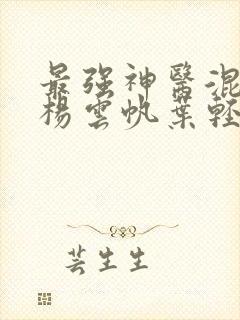 最强神醫混
楊雲帆葉輕
芸生生